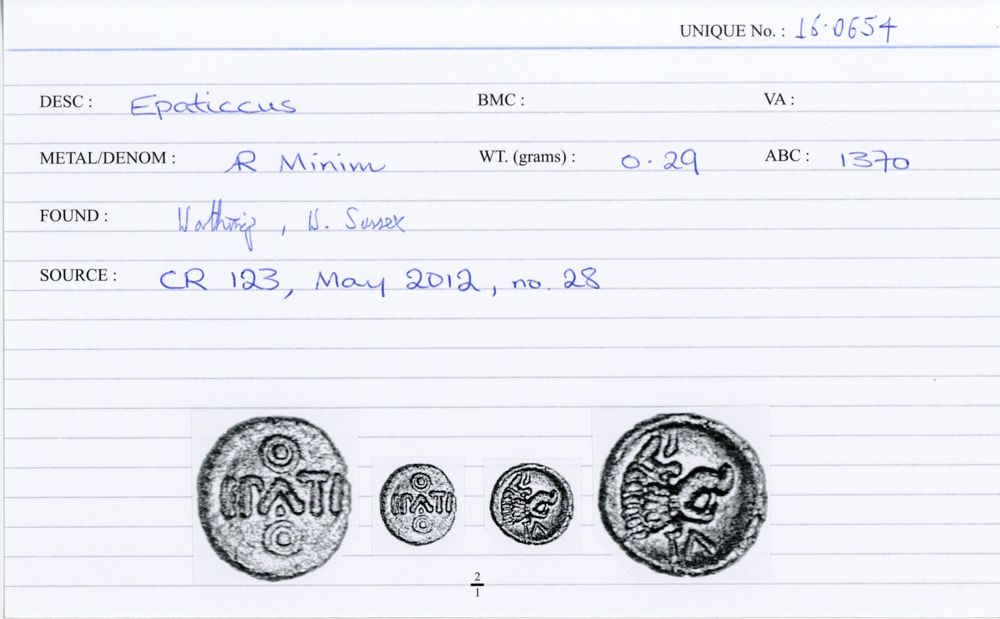 UNIQUE No. : 16.0654
DESC : Epaticcus BMC : VA :
METAL/DENOM : R Minim WT. (grams) : 0.29 ABC : 1370
FOUND : Worthing, W. Sussex
SOURCE : CR 123, May 2012, no. 28
2
1